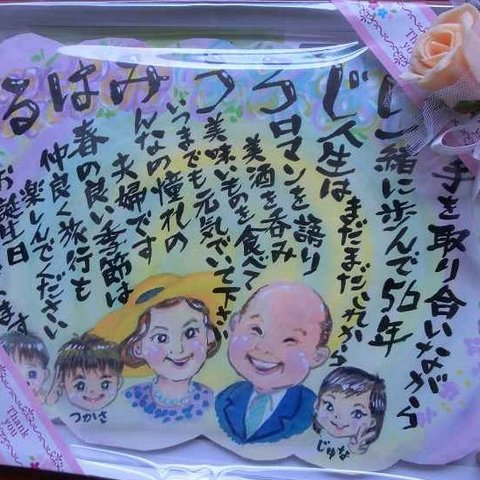 手を取り合いながら
一緒に歩んで56年
じ
人生はまだまだこれから
ロマンを語り
美酒を呑み
美味いものを食べて
いつまでも元気でいて下さい
みんなの憧れの
夫婦です
は
春の良い季節は
仲良く旅行も
る
楽しんでください
お誕生日
ます
つかさ
じゅな
Thank you
Thank you